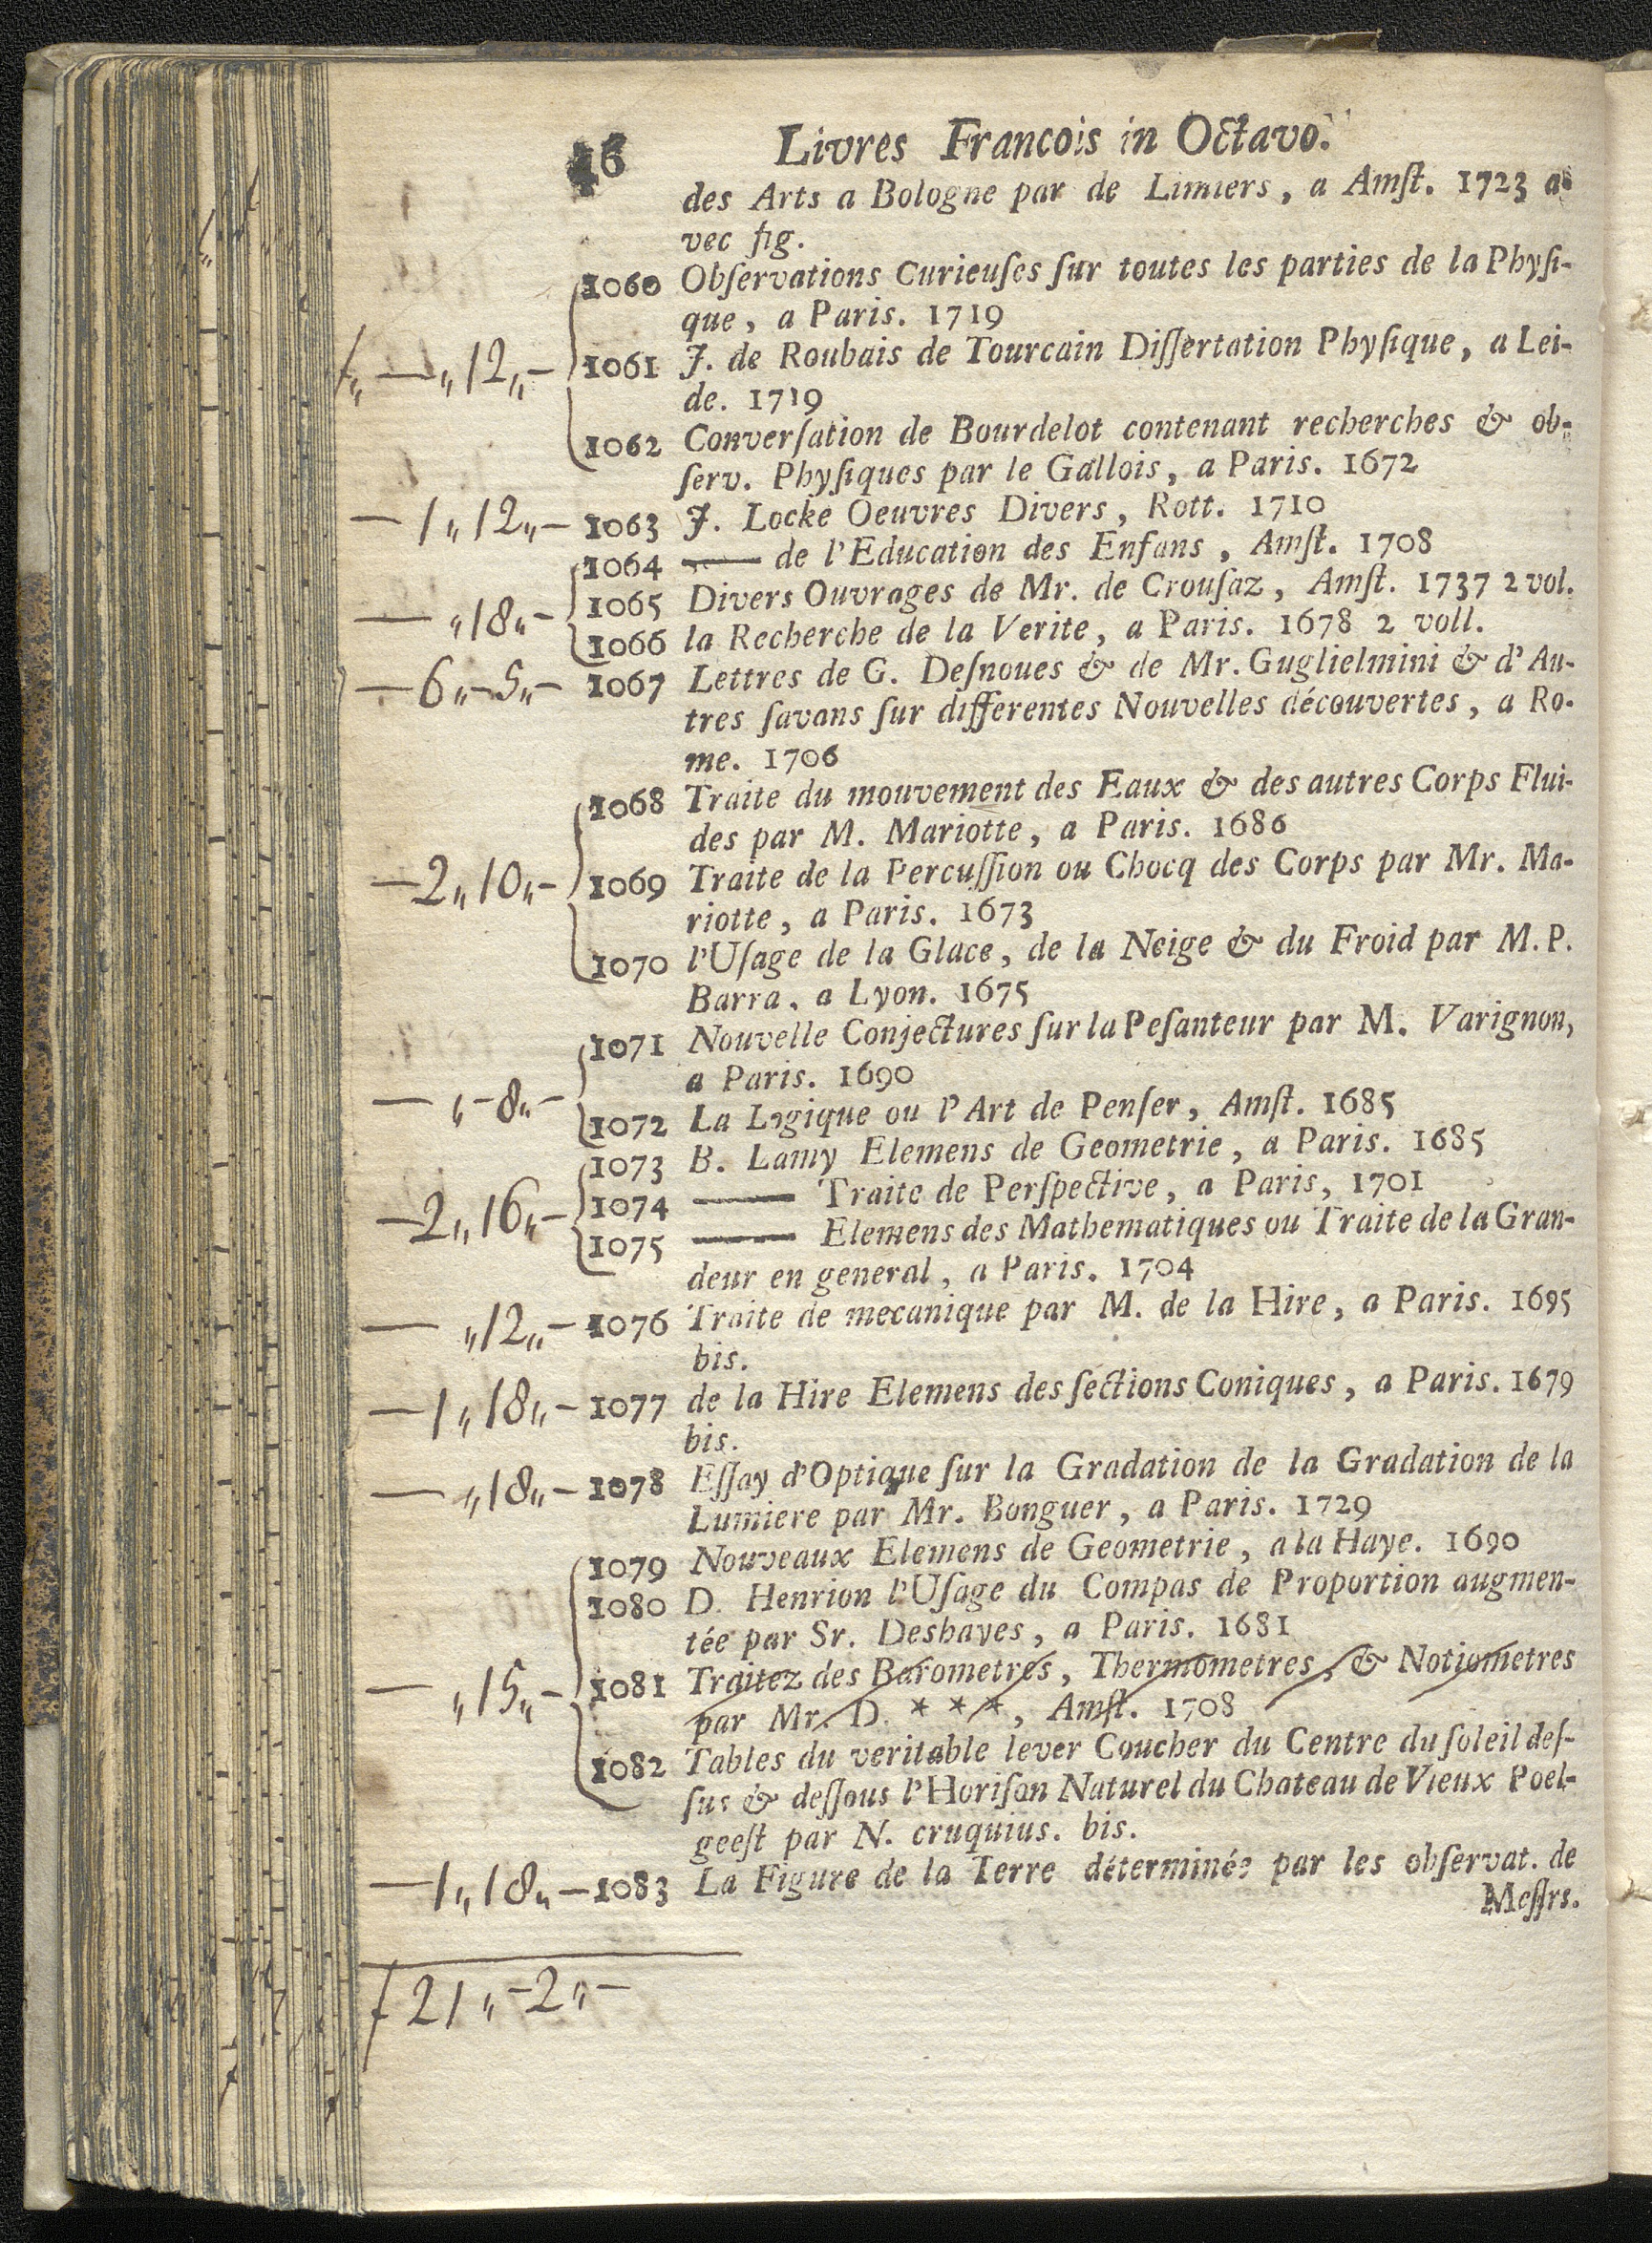 46 Livres Francois in Octavo.
des Arts a Bologne par de Limiers, a Amſt. 1723 a-
vec fig.
1060 Obſervations Curieuſes ſur toutes les parties de la Phyſi-
que, a Paris. 1719
f„ — „ 12 „ - 1061 J. de Roubais de Tourcain Diſſertation Phyſique, a Lei-
de. 1719
1062 Converſation de Bourdelot contenant recherches & ob-
ſerv. Phyſiques par le Gallois, a Paris. 1672
— 1 „ 12 „ - 1063 J. Locke Oeuvres Divers, Rott. 1710
1064 —— de l'Education des Enfans, Amſt. 1708
— „ 18 „ - 1065 Divers Ouvrages de Mr. de Crouſaz, Amſt. 1737 2 vol.
1066 la Recherche de la Verite, a Paris. 1678 2 voll.
— 6 „ - 5 „ - 1067 Lettres de G. Deſnoues & de Mr. Guglielmini & d'Au-
tres ſavans ſur differentes Nouvelles découvertes, a Ro-
me. 1706
1068 Traite du mouvement des Eaux & des autres Corps Flui-
des par M. Mariotte, a Paris. 1686
— 2 „ 10 „ - 1069 Traite de la Percuſſion ou Chocq des Corps par Mr. Ma-
riotte, a Paris. 1673
1070 l'Uſage de la Glace, de la Neige & du Froid par M. P.
Barra, a Lyon. 1675
1071 Nouvelle Conjectures ſur la Peſanteur par M. Varignon,
a Paris. 1690
— „ - 8 „ - 1072 La Logique ou l'Art de Penſer, Amſt. 1685
1073 B. Lamy Elemens de Geometrie, a Paris. 1685
— 2 „ 16 „ - 1074 —— Traite de Perſpective, a Paris, 1701
1075 —— Elemens des Mathematiques ou Traite de la Gran-
deur en general, a Paris. 1704
— „ 12 „ - 1076 Traite de mecanique par M. de la Hire, a Paris. 1695
bis.
— 1 „ 18 „ - 1077 de la Hire Elemens des ſections Coniques, a Paris. 1679
bis.
— „ 18 „ - 1078 Eſſay d'Optique ſur la Gradation de la Gradation de la
Lumiere par Mr. Bonguer, a Paris. 1729
1079 Nouveaux Elemens de Geometrie, a la Haye. 1690
1080 D. Henrion l'Uſage du Compas de Proportion augmen-
tée par Sr. Deshayes, a Paris. 1681
— „ 15 „ - 1081 Traitez des Barometres, Thermometres, & Notiometres
par Mr. D. * * *, Amſt. 1708
1082 Tables du veritable lever Coucher du Centre du ſoleil deſ-
ſus & deſſous l'Horiſon Naturel du Chateau de Vieux Poel-
geeſt par N. cruquius. bis.
— 1 „ 18 „ - 1083 La Figure de la Terre déterminée par les obſervat. de
Meſſrs.
f 21 „ - 2 „ -